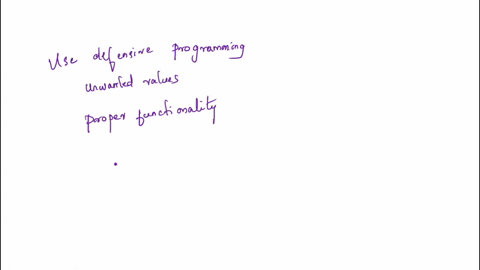 Use defensive programming
unwanted values
proper functionality